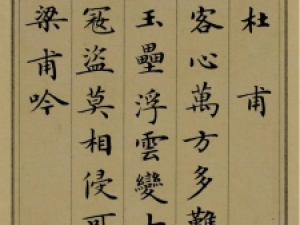 杜甫
客心萬方多難
玉壘浮雲變
寇盜莫相侵可
梁甫吟